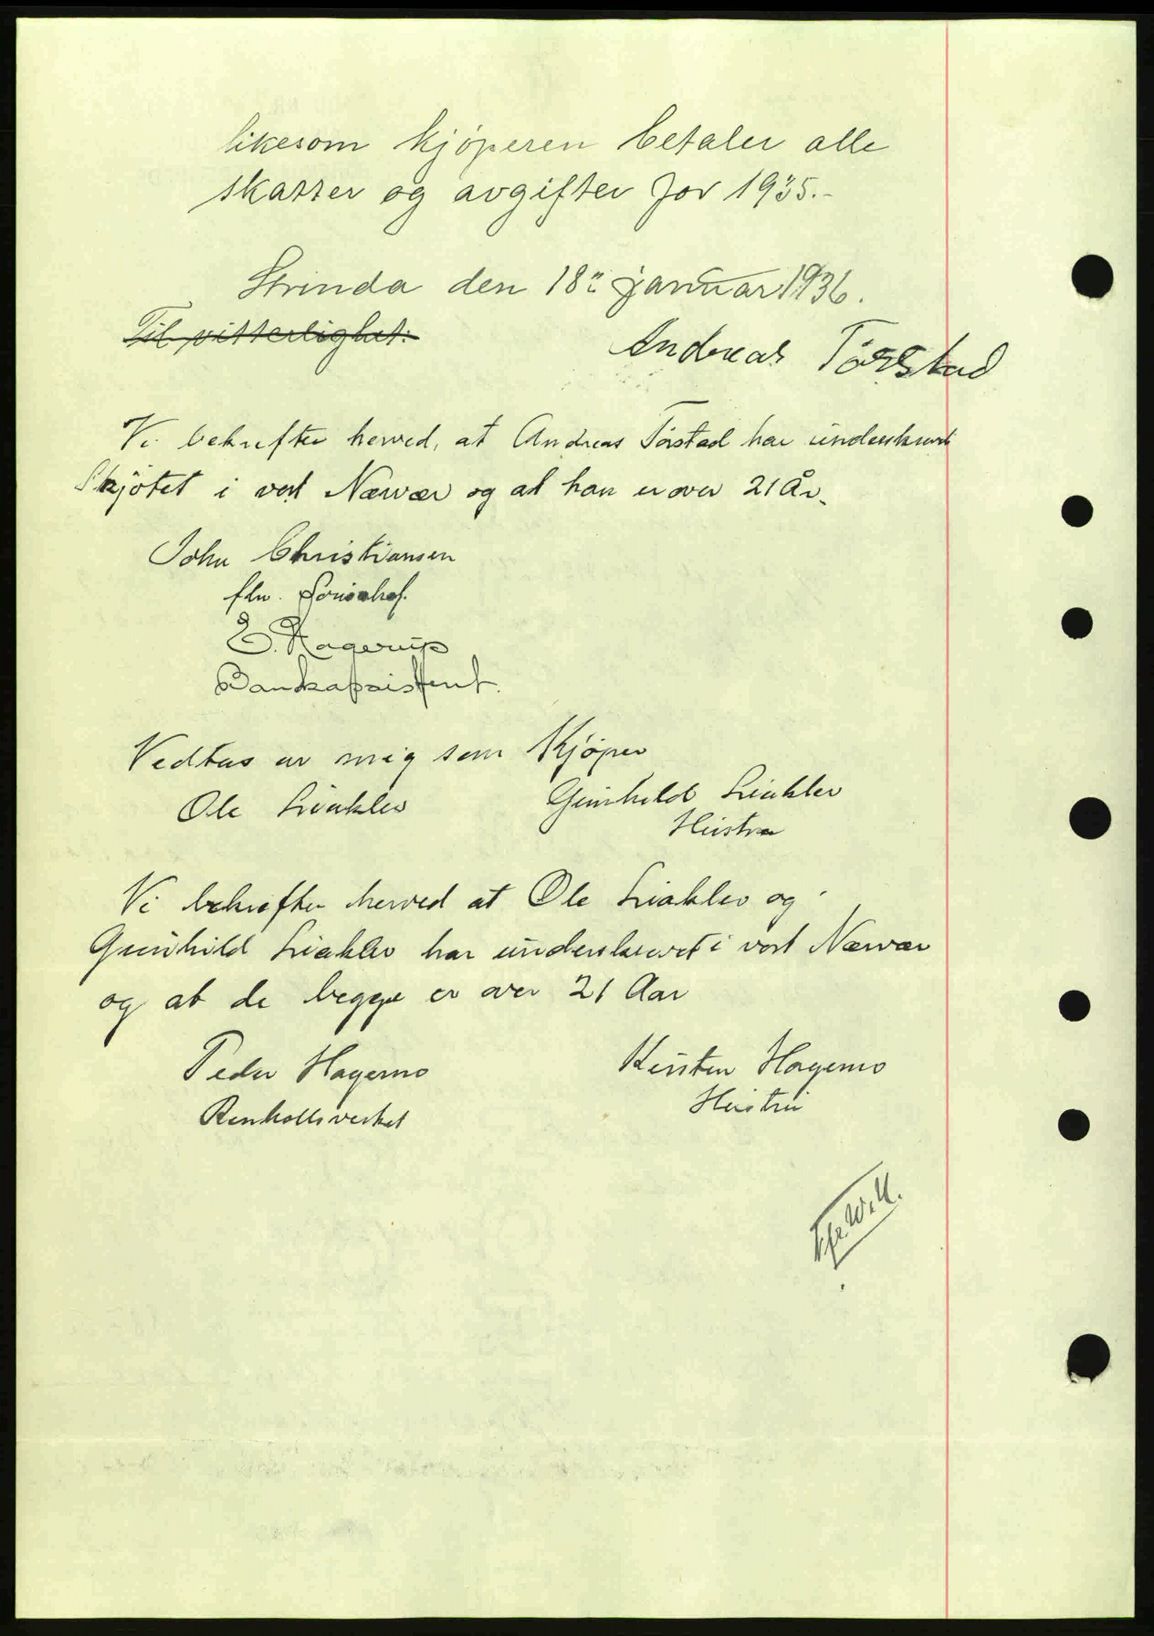 likesom kjöperen betaler alle
skatter og avgifter for 1935.-
Strinda den 18" januar 1936.
Til vitterlighet:
Andreas Törstad
Vi bekrefter herved, at Andreas Törstad har underskrevet
Skjötet i vort Nærvær og at han er over 21 År.
John Christiansen
E. Hagerup
Bankassistent.
Vedtas av mig som Kjöper
Ole Liaklev Gunhild Liaklev
Hustru
Vi bekrefter herved at Ole Liaklev og
Gunhild Liaklev har underskrevet i vort Nærvær
og at de begge er over 21 Aar
Peder Hagemo Kirsten Hagemo
Renholdsverket Hustru